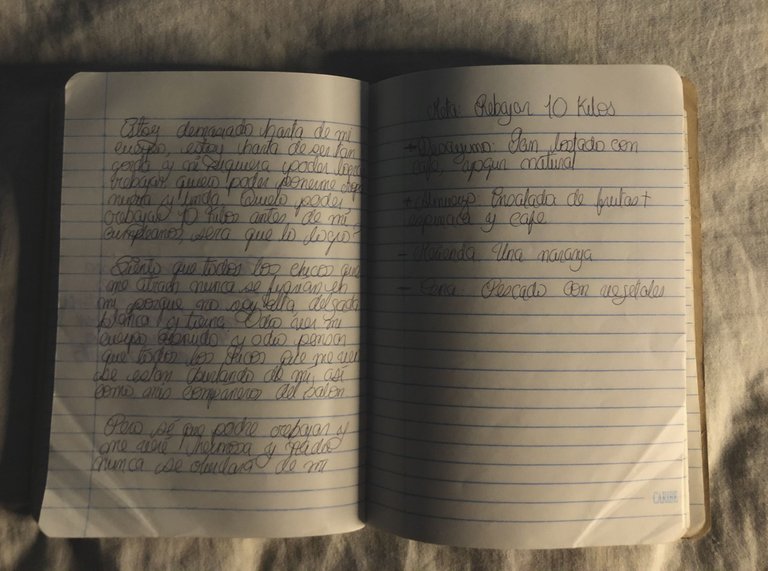 Estoy demasiado harta de mi
cuerpo, estoy harta de ser tan
gorda y ni siquiera poder
rebajar quiero poder ponerme ropa
nueva y linda. Quiero poder
rebajar 10 kilos antes de mi
cumpleaños, será que lo logro?
Siento que todos los chicos que
me atraen nunca se fijaran en
mi porque no soy alta delgada
blanca y tierna. Odio ver mi
cuerpo desnudo y odio pensar
que todos los chicos que me ven
se estan burlando de mi, así
como mis compañeros del salon
Pero sé que podre rebajar y
me veré hermosa y nadie
nunca se olvidara de mi
Meta: Rebajar 10 Kilos
+ Desayuno: Pan tostado con
cafe, yogur natural
+ Almuerzo: Ensalada de frutas +
espinaca y cafe
- Merienda: Una naranja
- Cena: Pescado con vegetales
CARIBE